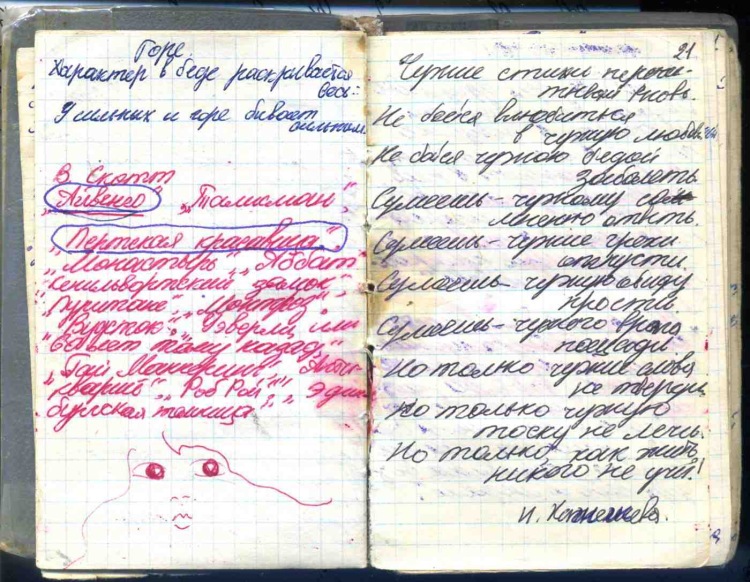 Горе.
Характер в беде раскрывается
весь:
У сильных и горе бывает
сильным.
В. Скотт
"Айвенго" "Талисман",
"Пертская красавица".
"Монастырь", "Аббат"
"Кенильвортский замок",
"Пуритане", "Монтроз",
"Вудсток", "Уэверли, или
60 лет тому назад",
"Гай Маннеринг" "Анти-
кварий", "Роб Рой", "Эдин-
бургская темница",
21
Чужие стихи перечи-
тывай вновь.
Не бойся влюбиться
в чужую любовь
Не бойся чужою бедой
заболеть
Сумеешь - чужому
отпеть.
Сумеешь - чужие грехи
отпусти.
Сумеешь - чужую обиду
прости
Сумеешь - чужого врага
пощади
Но только чужие слова
не тверди.
Но только чужую
тоску не лечь.
Но только, как жить,
никого не учи!
И.